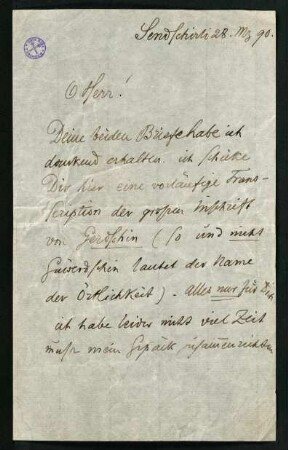 Sendschirli 28. Mz 90.
O Herr!
Deine beiden Briefe habe ich
dankend erhalten. ich schicke
Dir hier eine vorläufige Trans-
scription der grossen Inschrift
von Gerdschin (so und nichts
lautet der Name
der Örtlichkeit). Alles nur für Dich
ich habe leider nichts viel Zeit
muss mein Gepäck